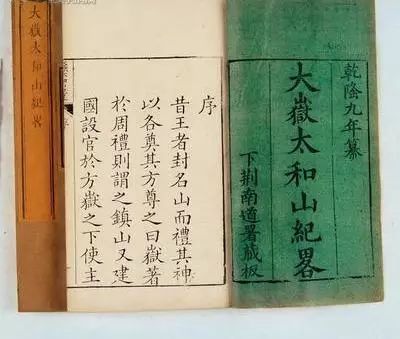 乾隆九年纂
大嶽太和山紀畧
下荆南道署藏板
序
昔王者封名山而禮其神
以各奠其方尊之曰嶽著
於周禮則謂之鎮山又建
國設官於方嶽之下使主
大嶽太和山紀畧